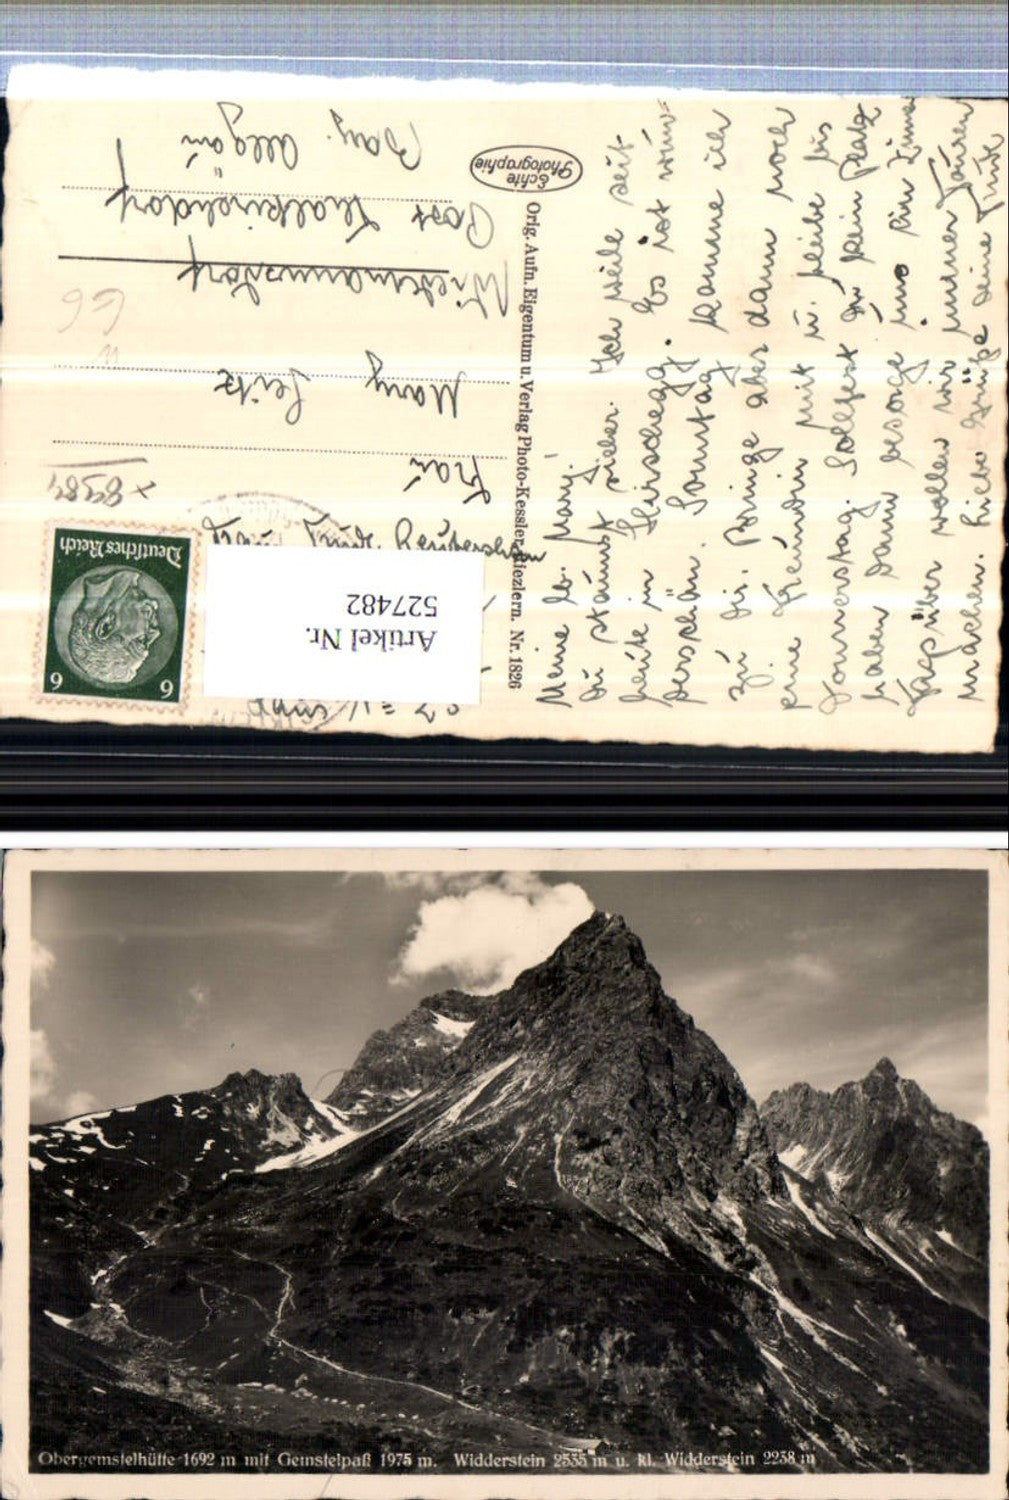 Meine lb. Mary!
Du staunst sicher. Ich weile seit
heute in Hirschegg. Es ist wun-
derschön. Sonntag komme ich
zu Dir. Bringe aber dann noch
eine Freundin mit u. bleibe bis
Donnerstag. Solltest Du kein Platz
haben dann besorge uns ein Zimmer
Tagsüber wollen wir immer Touren
machen. Liebe Grüße Deine Trude
Orig. Aufn. Eigentum u. Verlag Photo-Kessler, Riezlern. Nr. 1826
Echte
Photographie
Deutsches Reich
6 6
Artikel Nr.
527482
+8984
Frau
Mary Seitz
Wiedemannsdorf
Post Thalkirchdorf
Bay. Allgäu
Obergemstelhütte 1692 m mit Gemstelpaß 1975 m. Widderstein 2535 m u. kl. Widderstein 2238 m